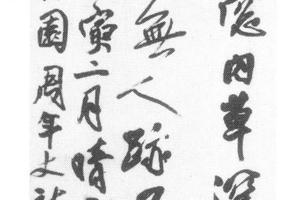 內草深
無人跡
寅二月晴
園周年大